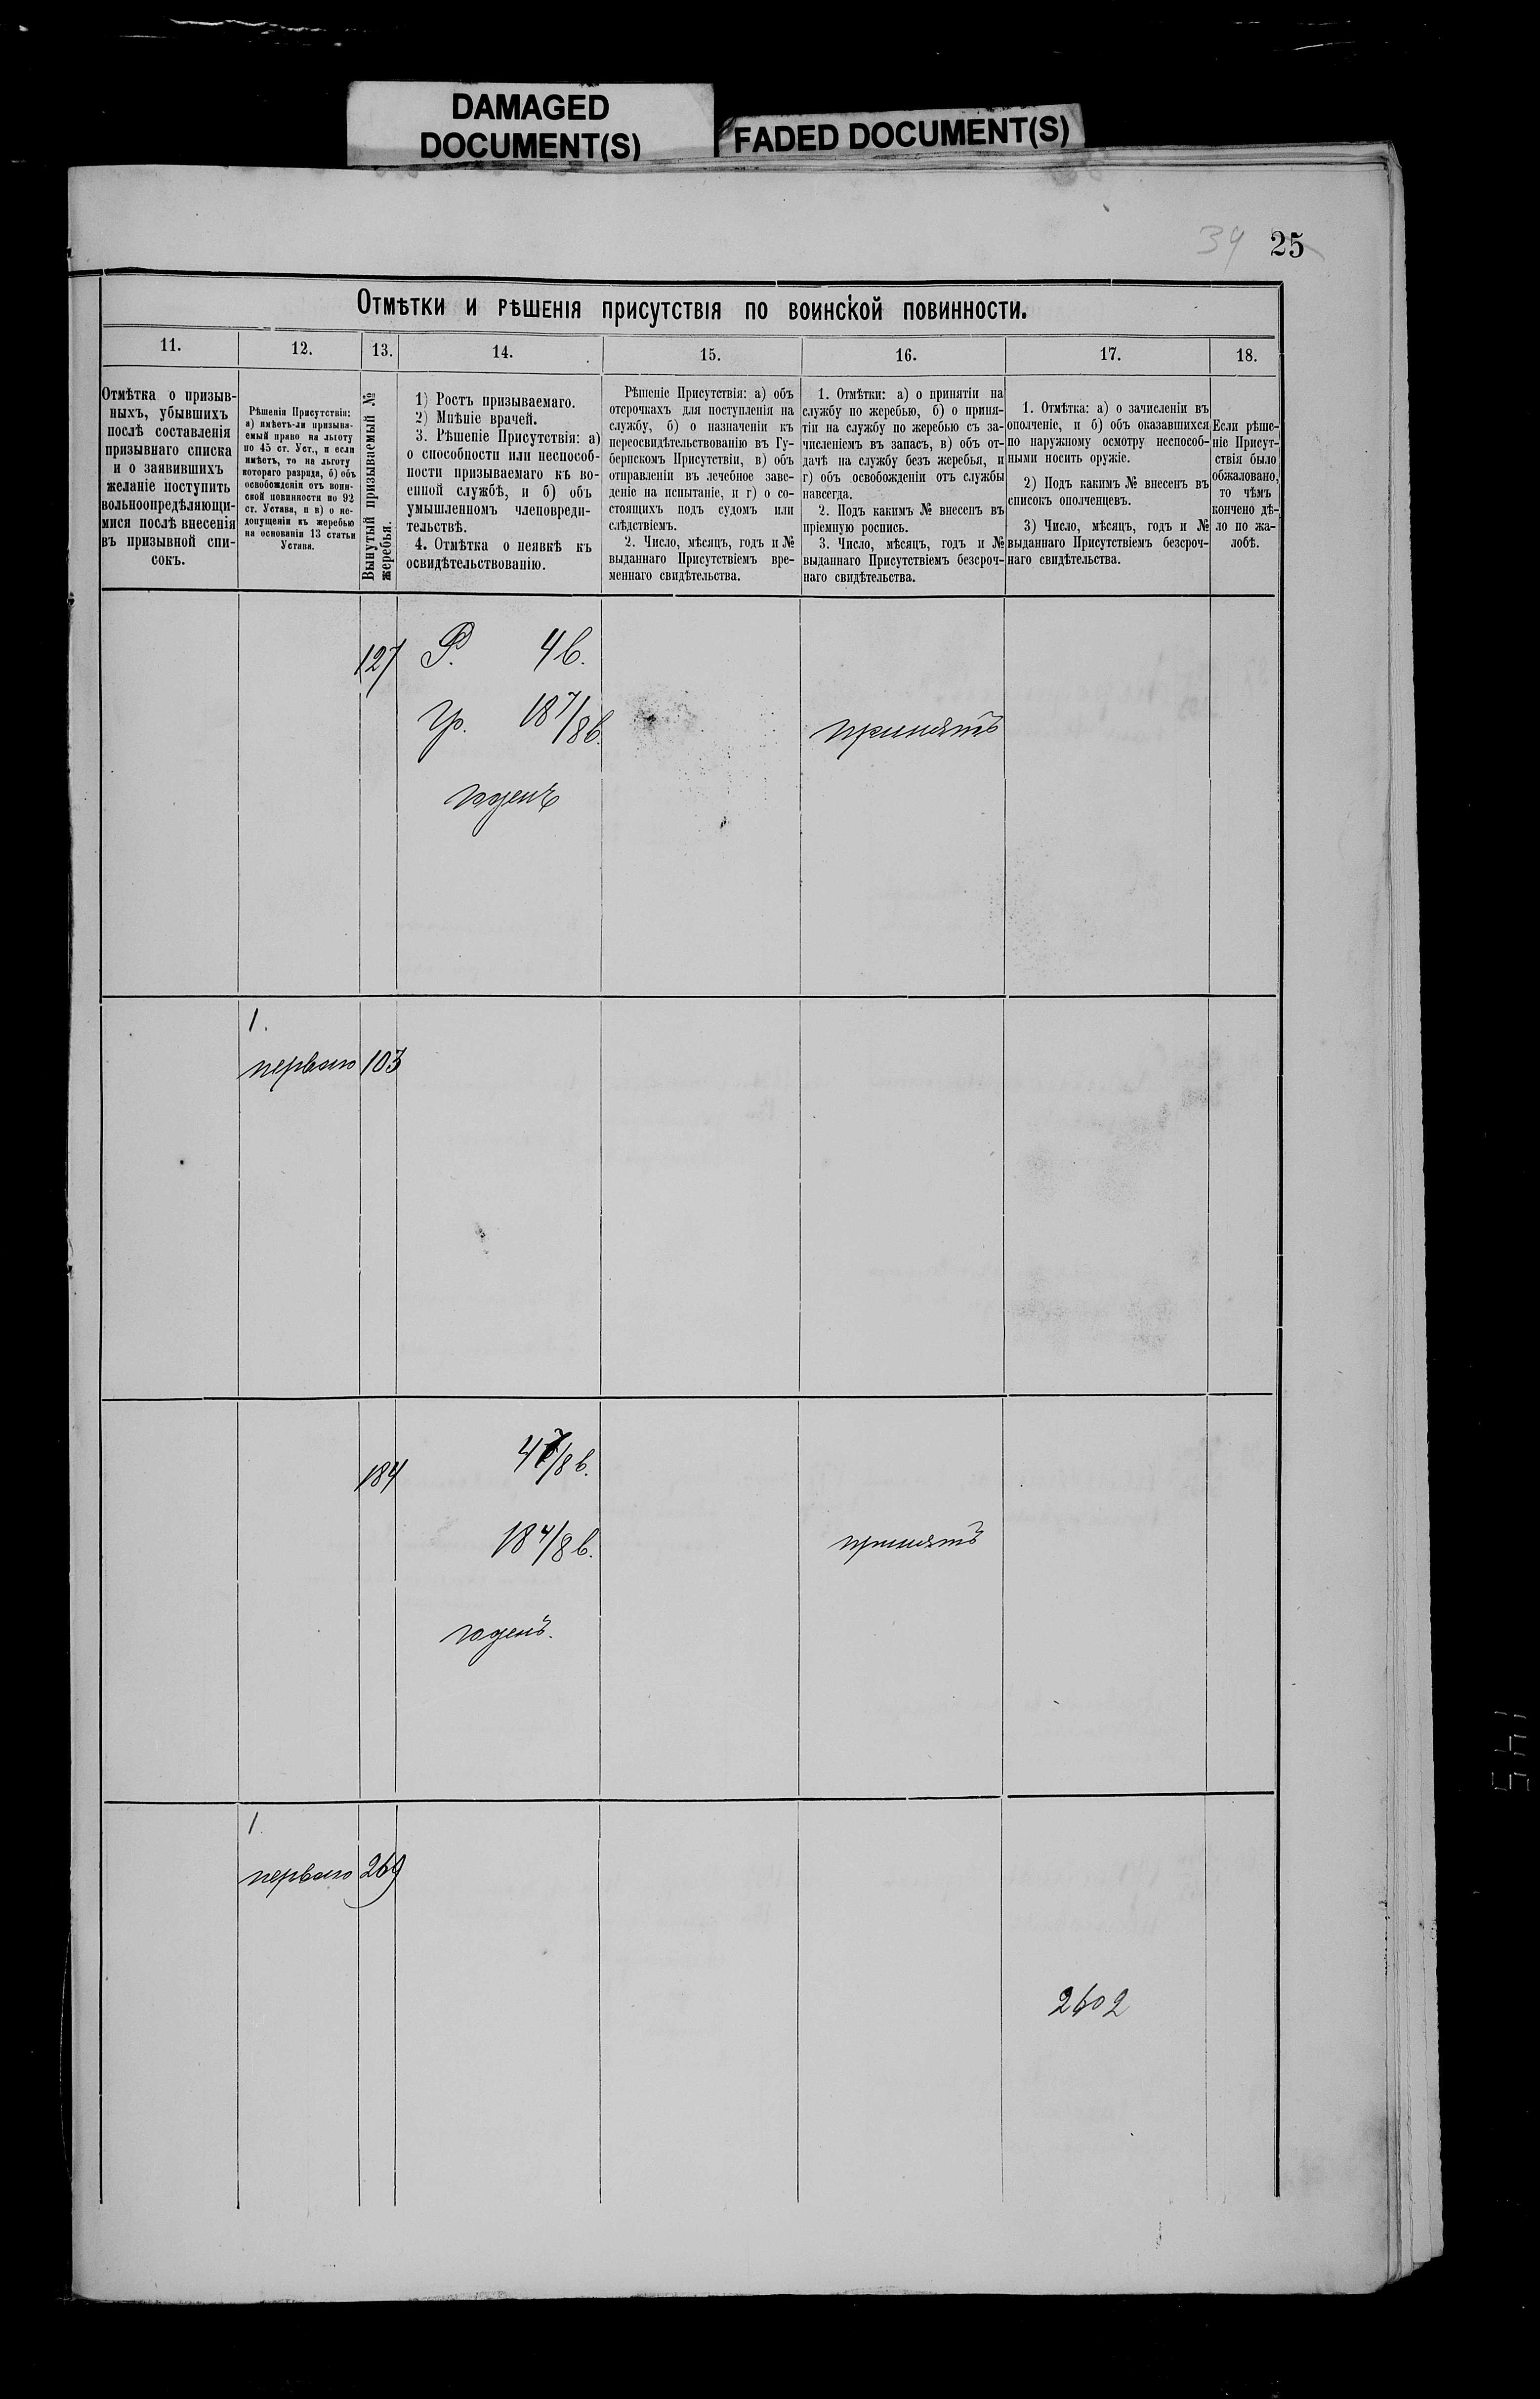 DAMAGED
DOCUMENT(S)
FADED DOCUMENT(S)
34 25
Отмѣтки и рѣшенія присутствія по воинской повинности.
11. 12. 13. 14. 15. 16. 17. 18.
Отмѣтка о призыв-
ныхъ, убывшихъ
послѣ составленія
призывнаго списка
и о заявившихъ
желаніе поступить
вольноопредѣляющи-
мися послѣ внесенія
въ призывной спи-
сокъ.
Рѣшенія Присутствія:
а) имѣетъ-ли призыва-
емый право на льготу
по 45 ст. Уст., и если
имѣетъ, то на льготу
котораго разряда, б) объ
освобожденіи отъ воин-
ской повинности по 92
ст. Устава, и в) о не-
допущеніи къ жеребью
на основаніи 13 статьи
Устава.
Вынутый призываемый №
жеребья.
1) Ростъ призываемаго.
2) Мнѣніе врачей.
3. Рѣшеніе Присутствія: а)
о способности или неспособ-
ности призываемаго къ во-
енной службѣ, и б) объ
умышленномъ членовреди-
тельствѣ.
4. Отмѣтка о неявкѣ къ
освидѣтельствованію.
Рѣшеніе Присутствія: а) объ
отсрочкахъ для поступленія на
службу, б) о назначеніи къ
переосвидѣтельствованію въ Гу-
бернскомъ Присутствіи, в) объ
отправленіи въ лечебное заве-
деніе на испытаніе, и г) о со-
стоящихъ подъ судомъ или
слѣдствіемъ.
2. Число, мѣсяцъ, годъ и №
выданнаго Присутствіемъ вре-
меннаго свидѣтельства.
1. Отмѣтки: а) о принятіи на
службу по жеребью, б) о приня-
тіи на службу по жеребью съ за-
численіемъ въ запасъ, в) объ от-
дачѣ на службу безъ жеребья, и
г) объ освобожденіи отъ службы
навсегда.
2. Подъ какимъ № внесенъ въ
пріемную роспись.
3. Число, мѣсяцъ, годъ и №
выданнаго Присутствіемъ безсроч-
наго свидѣтельства.
1. Отмѣтка: а) о зачисленіи въ
ополченіе, и б) объ оказавшихся
по наружному осмотру неспособ-
ными носить оружіе.
2) Подъ какимъ № внесенъ въ
списокъ ополченцевъ.
3) Число, мѣсяцъ, годъ и №
выданнаго Присутствіемъ безсроч-
наго свидѣтельства.
Если рѣше-
ніе Присут-
ствія было
обжаловано,
то чѣмъ
кончено дѣ-
ло по жа-
лобѣ.
127 Р. 4 в.
Гр. 18 7/8 в. принятъ
годенъ
1.
перваго 103
184 4 7/8 в.
18 4/8 в. принятъ
годенъ.
1.
перваго 269
2602
145